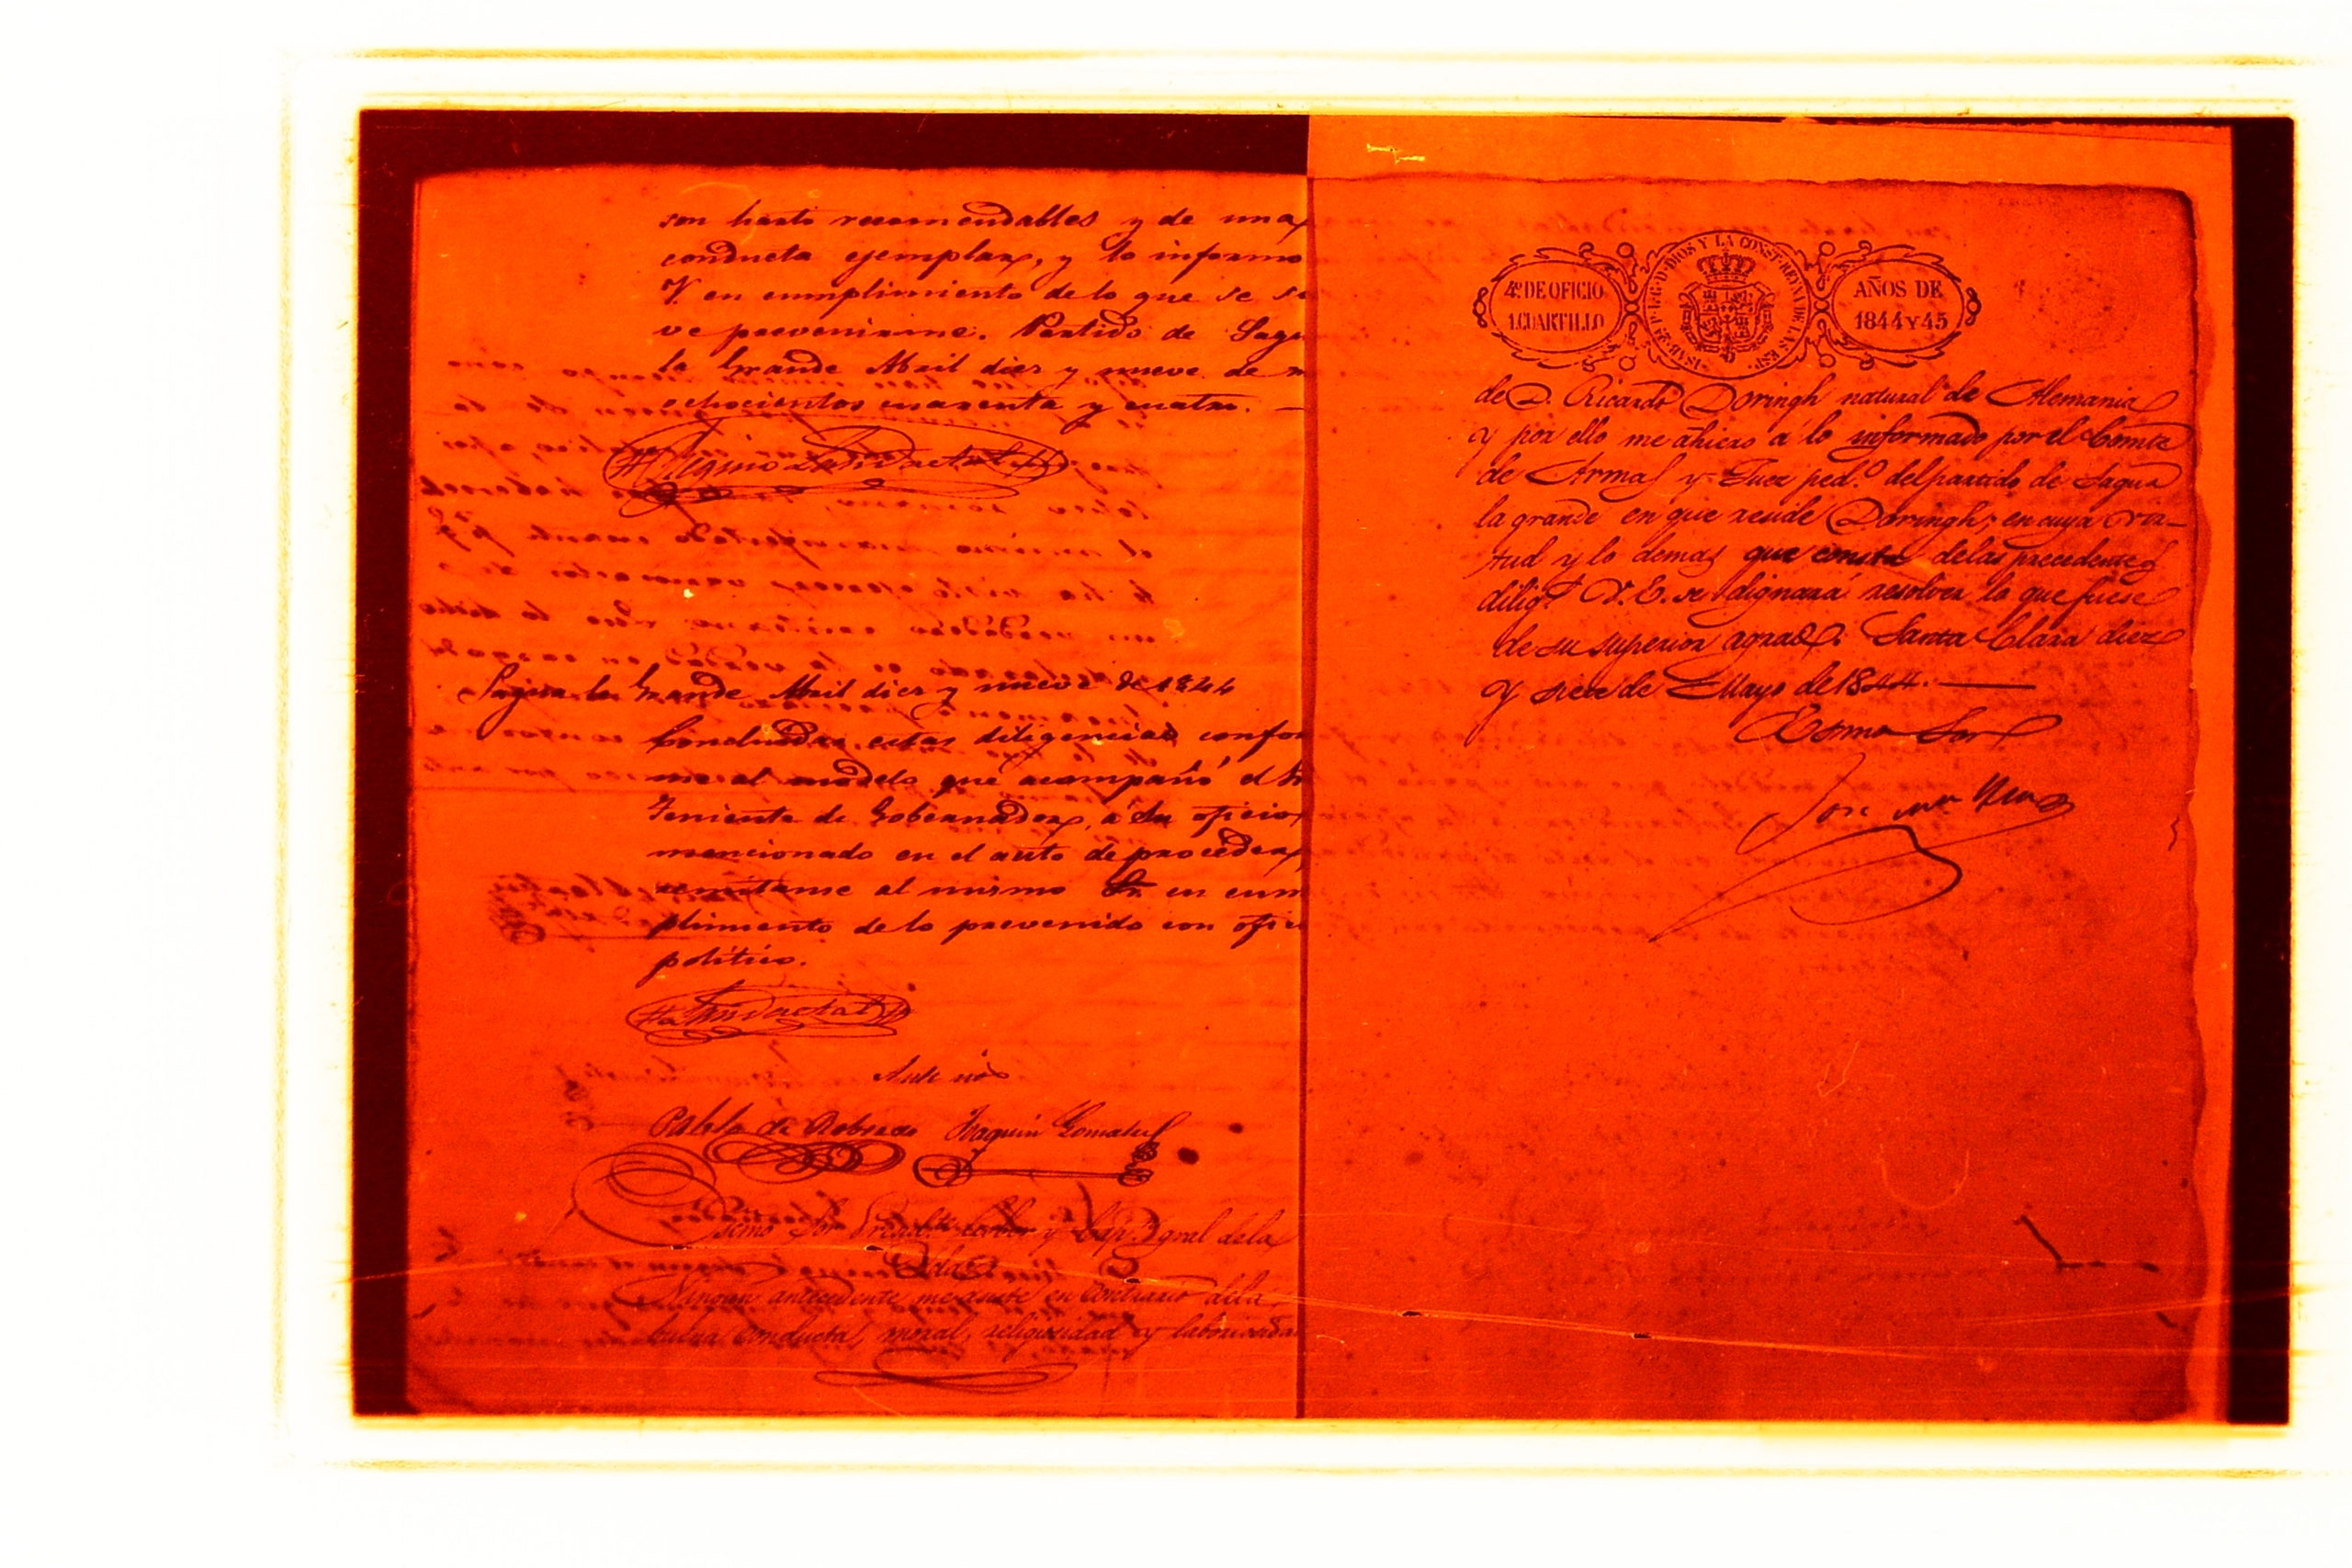 son harto recomendables y de una
conducta ejemplar, y lo informo
V. en cumplimiento de lo que se
ve prevenirme. Partido de Sagu
la Grande Abril diez y nueve de m
ochocientos cuarenta y cuatro. —
Sagua la Grande Abril diez y nueve de 1844
Concluidas estas diligencias confor
me al modelo que acompañó el
Teniente de Gobernador, á su oficio
mencionado en el auto de proceder,
remitanse al mismo Sr. en cum
plimiento de lo prevenido con ofici
político.
Ante nos
Pablo de Robredo Joaquin Gonzalez
Escmo Sor Presidte Gobor y Capn gral dela
Isla
Ningun antecedente me asiste en contrario dela
buena conducta, moral, religiosidad y laboriosidad
4º DE OFICIO
1. CUARTILLO
ISAB. 2ª P. L. G. D. DIOS Y LA CONST. REYNA DE LAS ESP.
AÑOS DE
1844 Y 45
de D. Ricardo Doringh natural de Alemania
y por ello me ahiero á lo informado por el Comte
de Armas y Juez ped.º del partido de Sagua
la grande en que reside Doringh; en cuya vir-
tud y lo demas que consta delas precedentes
diligs V. E. se dignará resolver lo que fuese
de su superior agrado. Santa Clara diez
y siete de Mayo de 1844. —
Escmo Sor